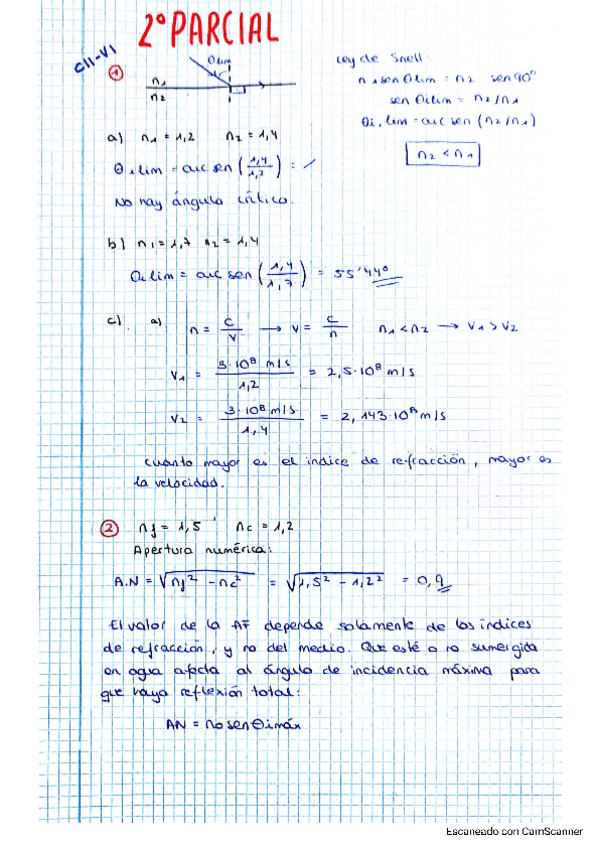 2º PARCIAL
CII-VI
1
θlim
n1
n2
Ley de Snell:
n1 sen θlim = n2 sen 90º
sen θilim = n2/n1
θi,lim = arc sen (n2/n1)
n2 < n1
a) n1 = 1,2 n2 = 1,4
θilim = arc sen (1,4/1,2) = /
No hay ángulo crítico.
b) n1 = 1,7 n2 = 1,4
θilim = arc sen (1,4/1,7) = 55'44º
c) a) n = c/v → v = c/n n1 < n2 → v1 > v2
v1 = 3·10⁸ m/s / 1,2 = 2,5·10⁸ m/s
v2 = 3·10⁸ m/s / 1,4 = 2,143·10⁸ m/s
cuanto mayor es el índice de refracción, mayor es
la velocidad.
2 nf = 1,5 nc = 1,2
Apertura numérica:
A.N = √(nf² - nc²) = √(1,5² - 1,2²) = 0,9
El valor de la AF depende solamente de los índices
de refracción, y no del medio. Que esté o no sumergida
en agua afecta al ángulo de incidencia máxima para
que haya reflexión total:
AN = no sen θimáx
Escaneado con CamScanner